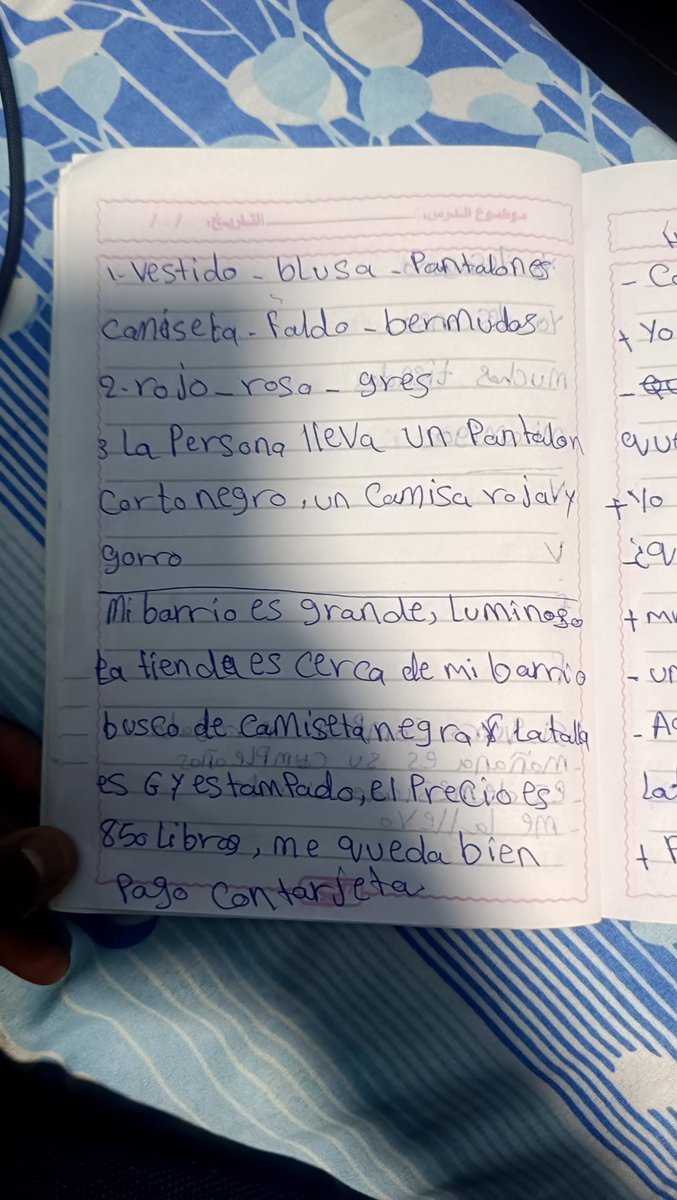 موضوع الدرس: التاريخ: / /
1- vestido - blusa - Pantalones
camiseta - faldo - bermudas
2. rojo - rosa - gres
3 La Persona lleva un Pantalon
Corto negro, un Camisa roja y
gorro
Mi barrio es grande, Luminoso
La tienda es cerca de mi barrio
busco de camiseta negra y la talla
es G y estampado, el Precio es
850 Libras, me queda bien
Pago con tarjeta
- Co
+ Yo
-
que
+ Yo
¿q
+ mu
- un
- Ac
La
+ P